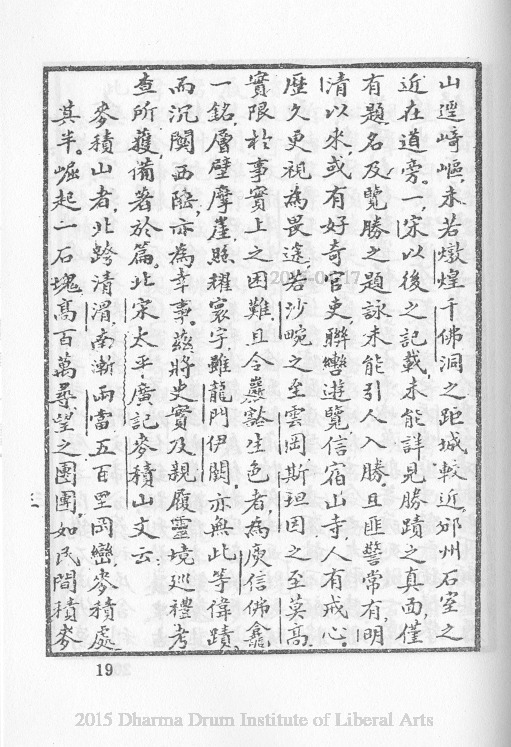 山逕崎嶇,未若燉煌千佛洞之距城較近,邠州石室之
近在道旁。一,宋以後之記載,未能詳見勝蹟之真面,僅
有題名及覽勝之題詠未能引人入勝。且匪警常有,明
清以來,或有好奇官吏,聯轡遊覽,信宿山寺,人有戒心。
歷久更視為畏途,若沙畹之至雲岡,斯坦因之至莫高,
實限於事實上之困難,且令巖谿生色者,為庾信佛龕
一銘,層壁摩崖,照耀寰宇,雖龍門伊闕,亦無此等偉蹟,
而沉闃西陲,亦為幸事。茲將史實及親履靈境巡禮考
查所獲,備著於篇。北宋太平廣記麥積山文云:
麥積山者,北跨清渭,南漸兩當,五百里岡巒,麥積處
其半。崛起一石塊,高百萬尋,望之團團,如民間積麥
三
19
2015 Dharma Drum Institute of Liberal Arts